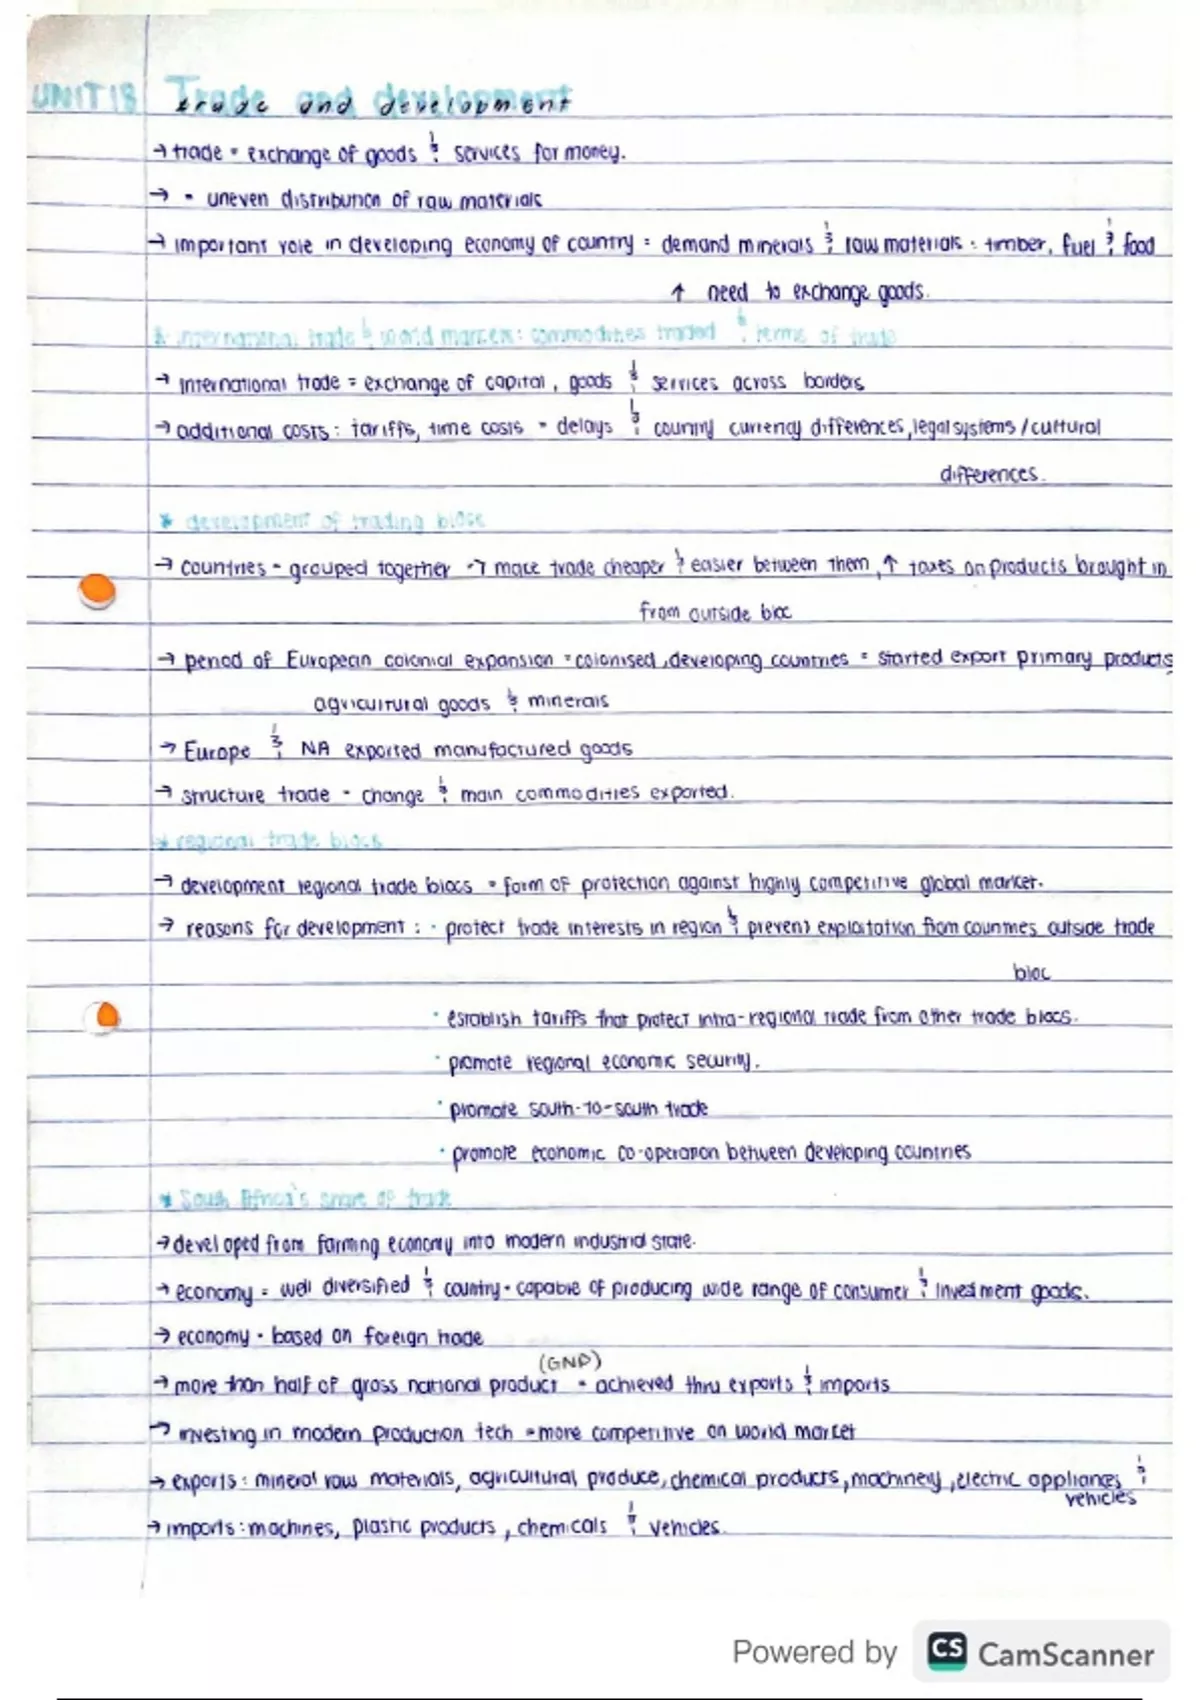 UNIT 18 Trade and development
trade and development
→ trade = exchange of goods & services for money.
→ • uneven distribution of raw materials
→ important role in developing economy of country = demand minerals & raw materials : timber, fuel & food
↑ need to exchange goods.
* international trade & world markets: commodities traded & terms of trade
→ international trade = exchange of capital, goods & services across borders
→ additional costs: tariffs, time costs = delays & country currency differences, legal systems / cultural
differences.
* development of trading blocs
→ countries - grouped together → make trade cheaper & easier between them, ↑ taxes on products brought in
from outside bloc
→ period of European colonial expansion = colonised, developing countries = started export primary products
agricultural goods & minerals
→ Europe & NA exported manufactured goods
→ structure trade - change & main commodities exported.
* regional trade blocs
→ development regional trade blocs = form of protection against highly competitive global market.
→ reasons for development : • protect trade interests in region & prevent exploitation from countries outside trade
bloc
• establish tariffs that protect intra-regional trade from other trade blocs.
• promote regional economic security.
• promote south-to-south trade
• promote economic co-operation between developing countries
* South Africa's share of trade
→ developed from farming economy into modern industrial state.
→ economy = well diversified & country - capable of producing wide range of consumer & investment goods.
→ economy - based on foreign trade
(GNP)
→ more than half of gross national product = achieved thru exports & imports
→ investing in modern production tech = more competitive on world market
→ exports : mineral raw materials, agricultural produce, chemical products, machinery, electric appliances &
vehicles
→ imports : machines, plastic products, chemicals & vehicles.
Powered by CS CamScanner